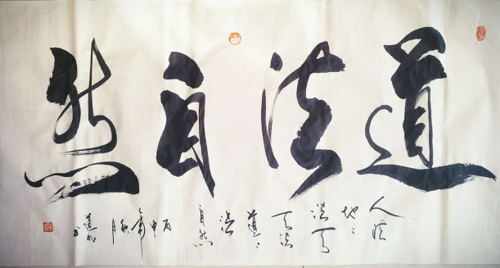 道法自然
人法
地〻
法天
天法
道〻
法
自然
丙申
年